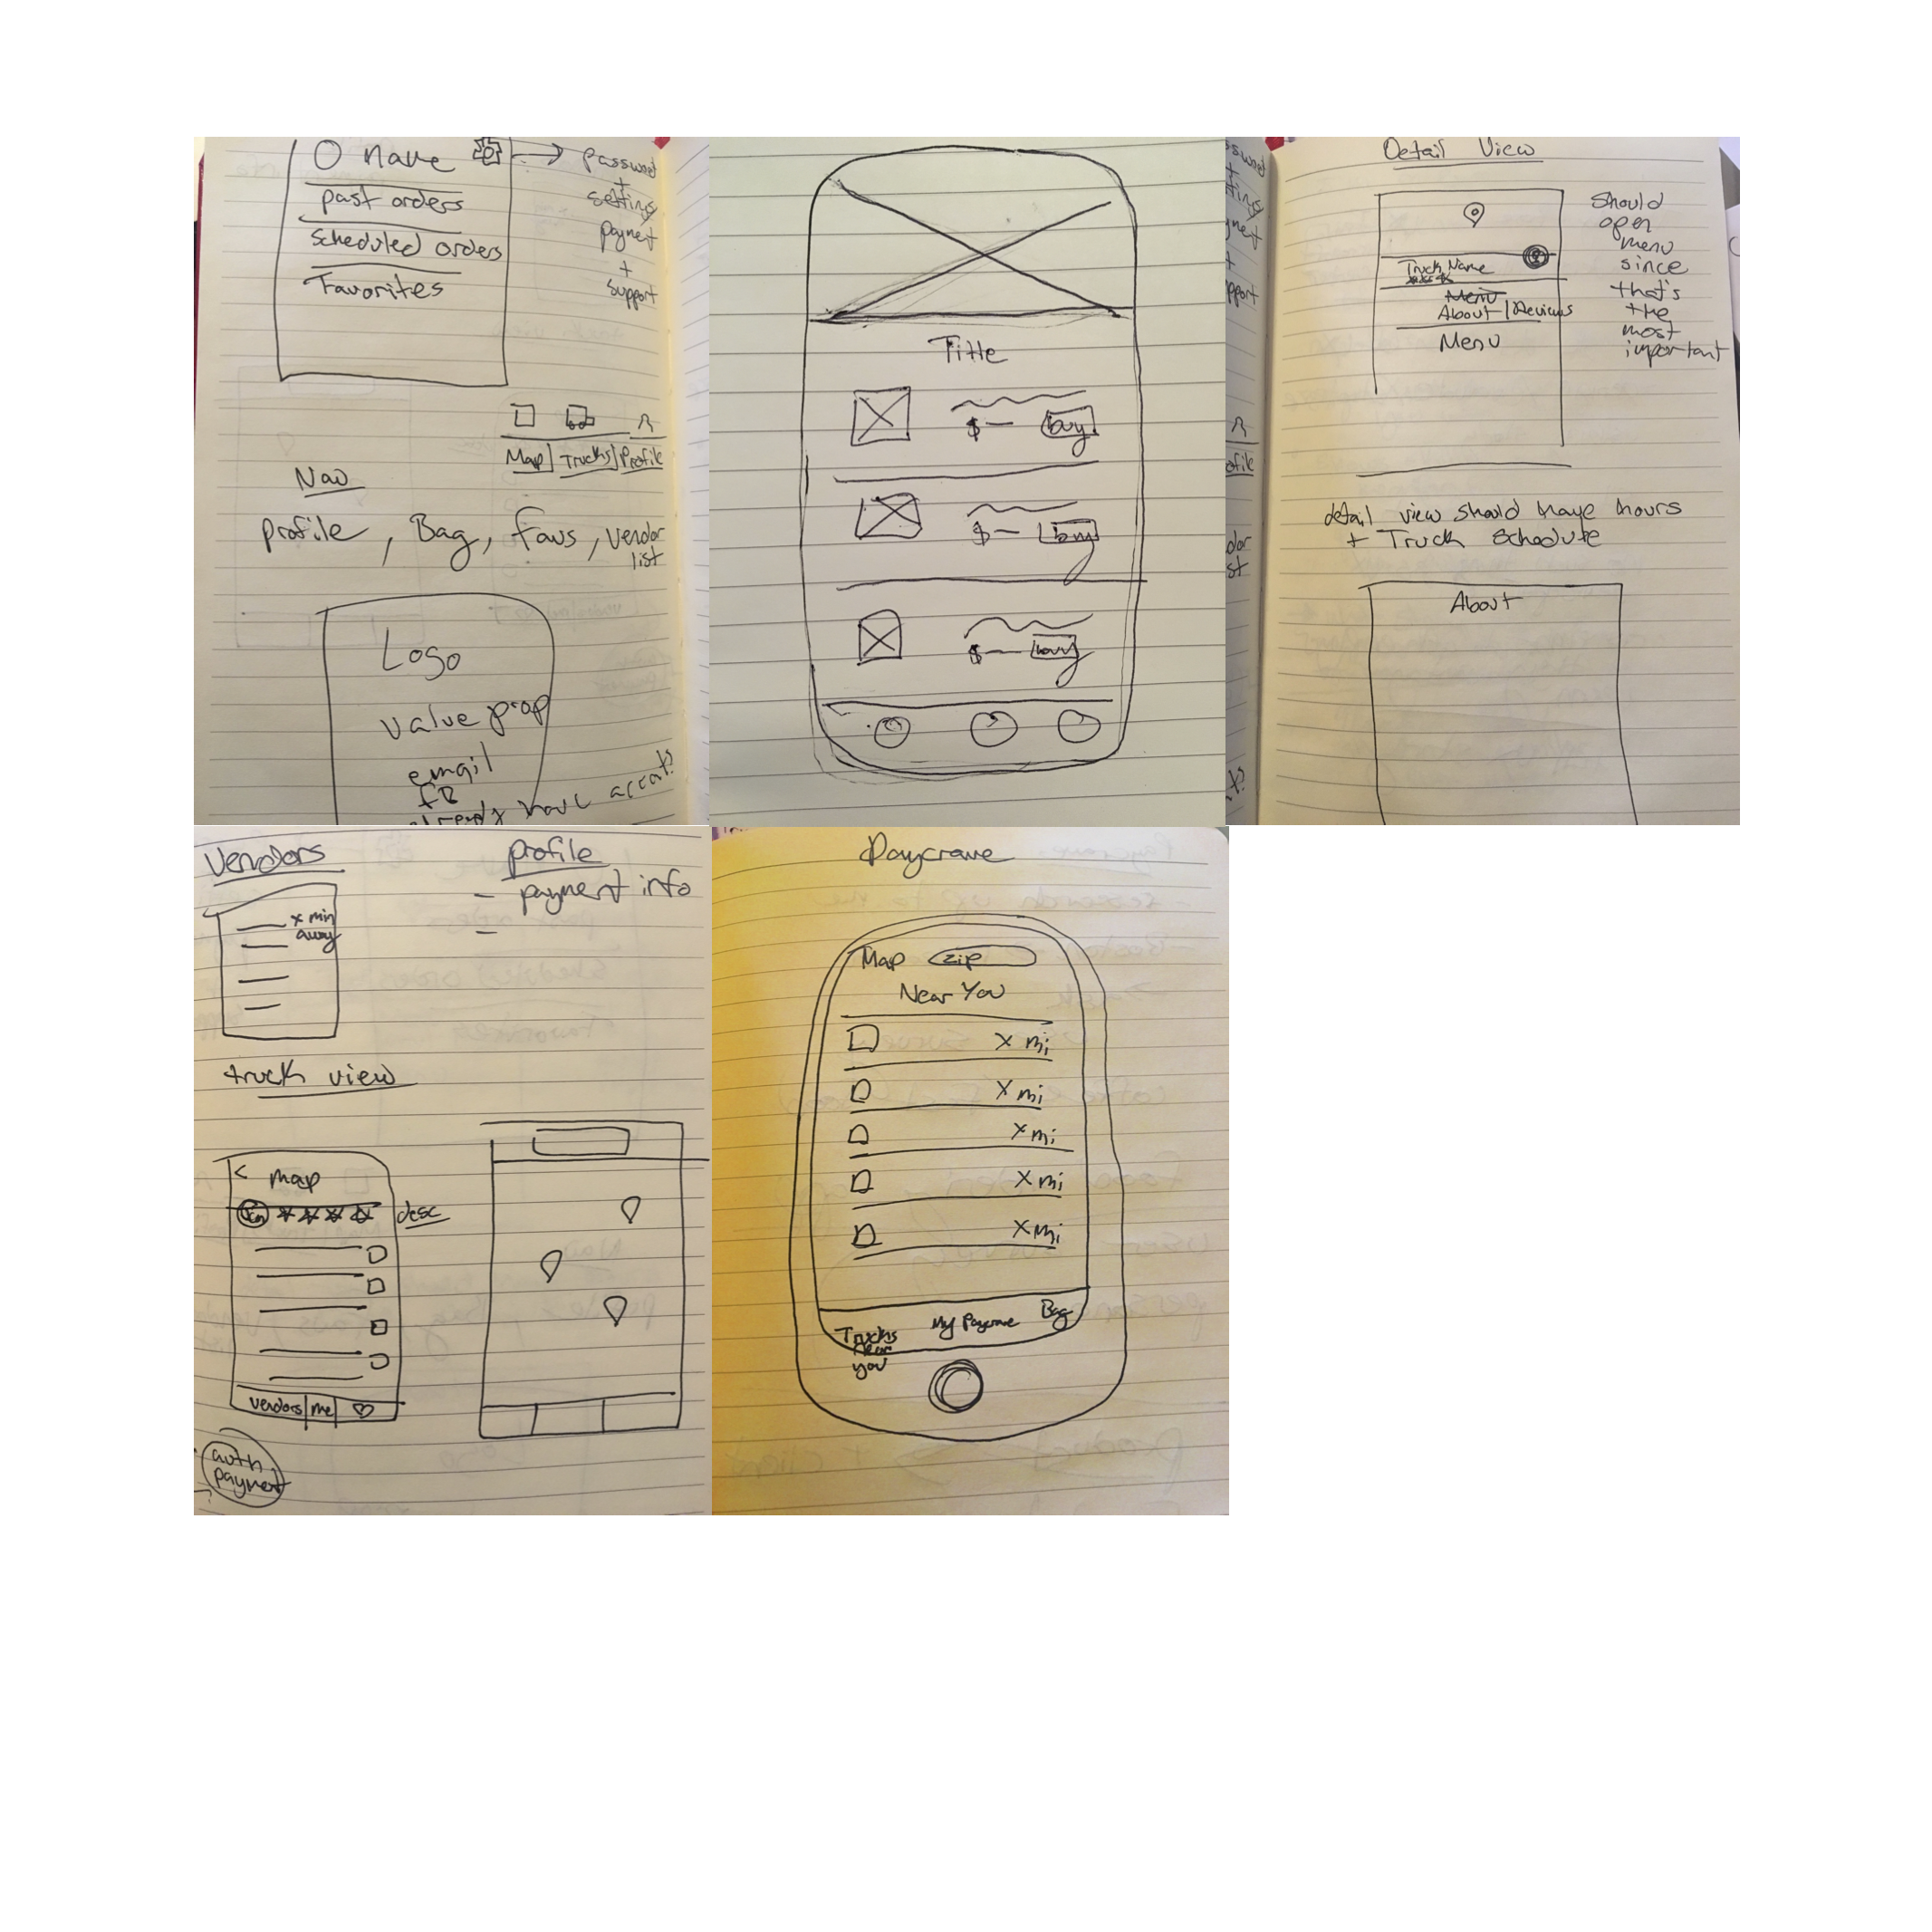 O name
past orders
scheduled orders
Favorites
password
+
settings
paymet
+
support
Map | Trucks | Profile
Nav
profile, Bag, Favs, vendor
list
Logo
value prop
email
FB
already have
Title
$— buy
$— buy
$— buy
Detail View
Truck Name
Menu
About | Reviews
Menu
Should
open
menu
since
that's
the
most
important
detail view should have hours
+ Truck Schedule
About
Vendors
x min
away
profile
- payment info
-
truck view
< map
desc
vendors | me
auth
payment
Paycrave
Map zip
Near You
X mi
X mi
X mi
X mi
X mi
Trucks
Near
you
My Paycrave
Bag